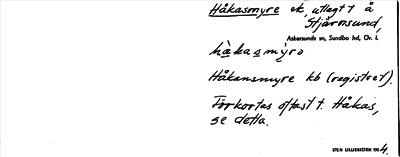 Håkasmyre ek, utlagt t å
Stjärnsund,
Askersunds sn, Sundbo hd, Ör. l.
hå̀kasmy̨ro
Håkansmyre kb (registret).
Förkortas oftast t. Håkas,
se detta.
STEN LILLIEBJÖRN 1954.